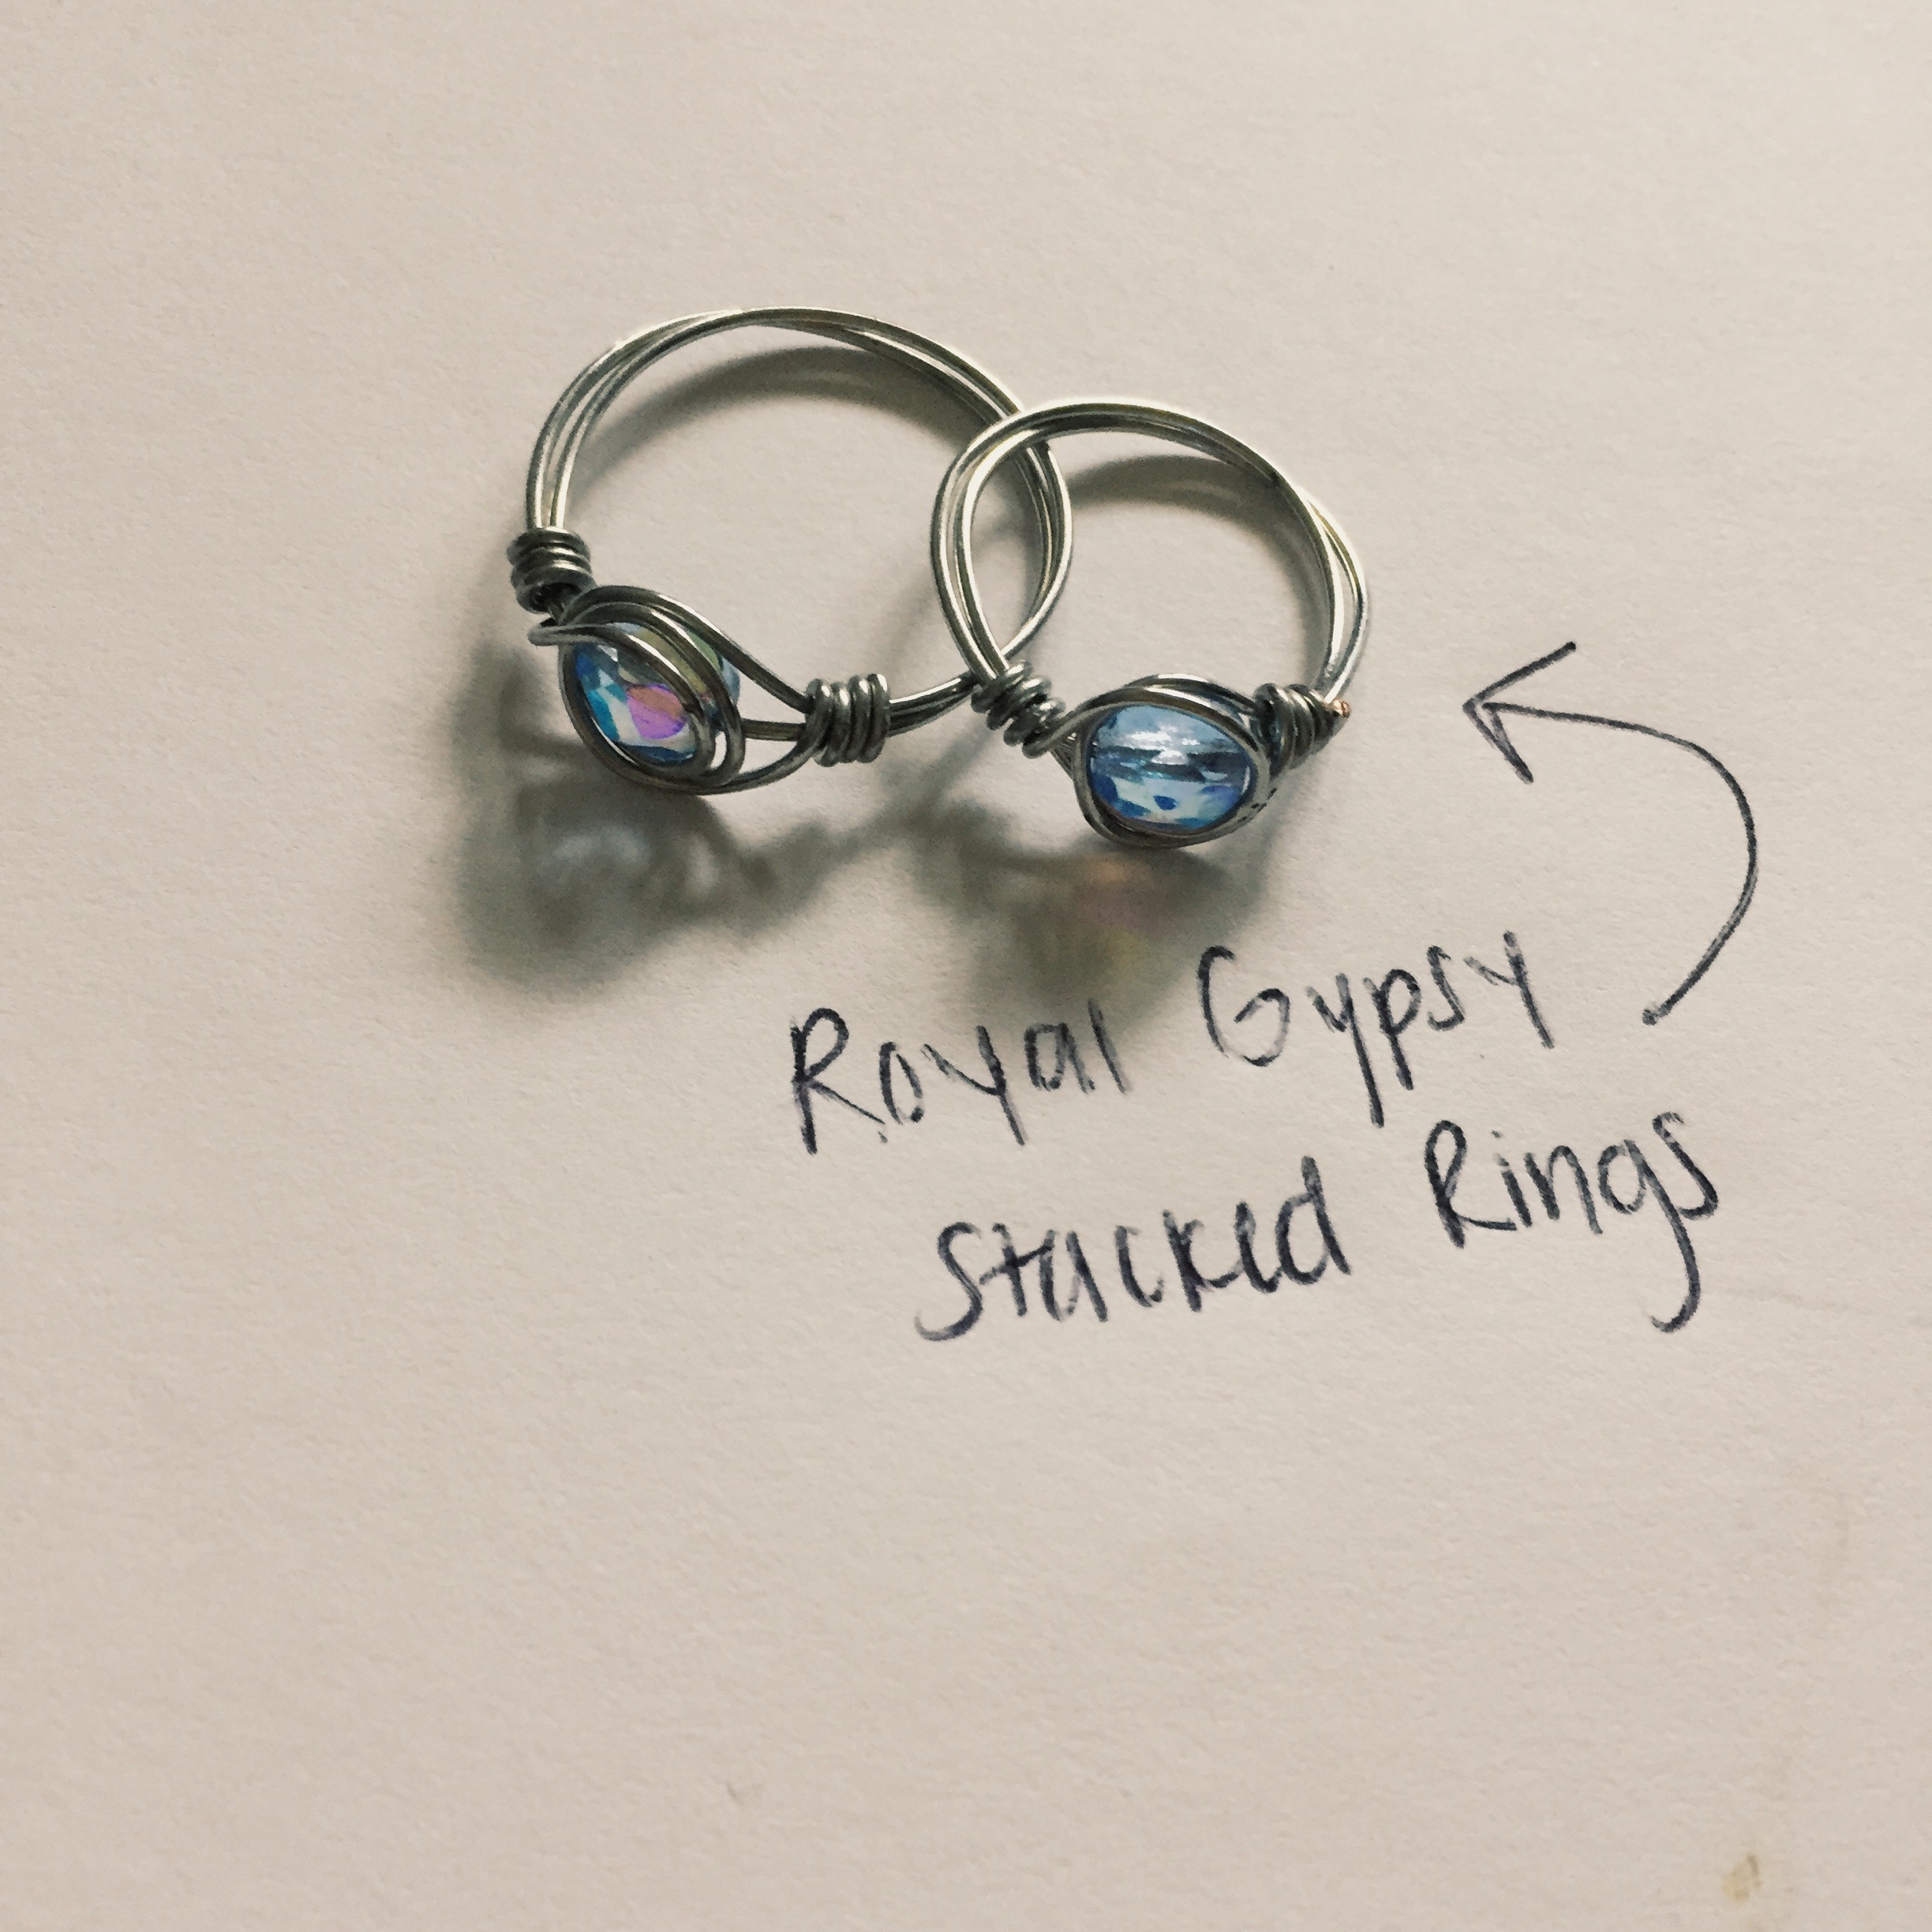 Royal Gypsy
Stacked Rings